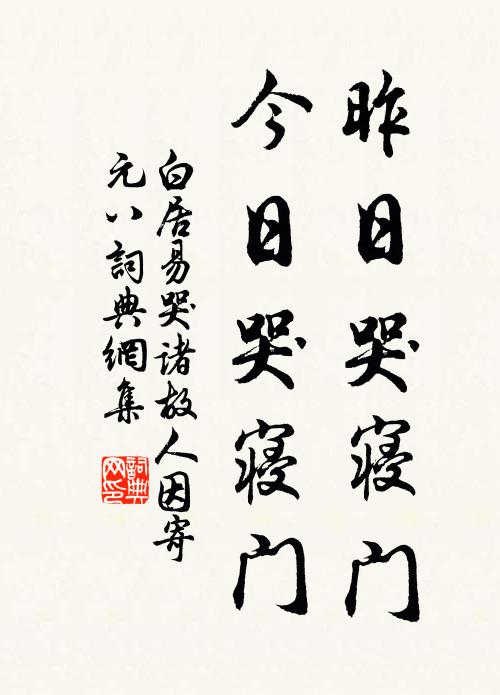 昨日哭寝门
今日哭寝门
白居易哭诸故人因寄
元八詞典網集
詞典
网印